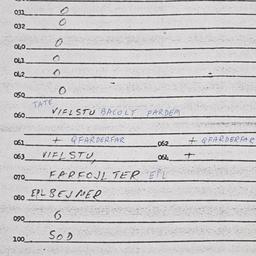 031 0
032 0
040 0
041 0
042 0
050 0
TATE
060 VIFLSTU BACOLT FARDEM
061 + GFARDERFAR 062 + GFARDERFAR
063 VIFLSTU, 064 +
070 FARFOJLTER EPL
080 EPLBEJMER
090 6
100 SOD